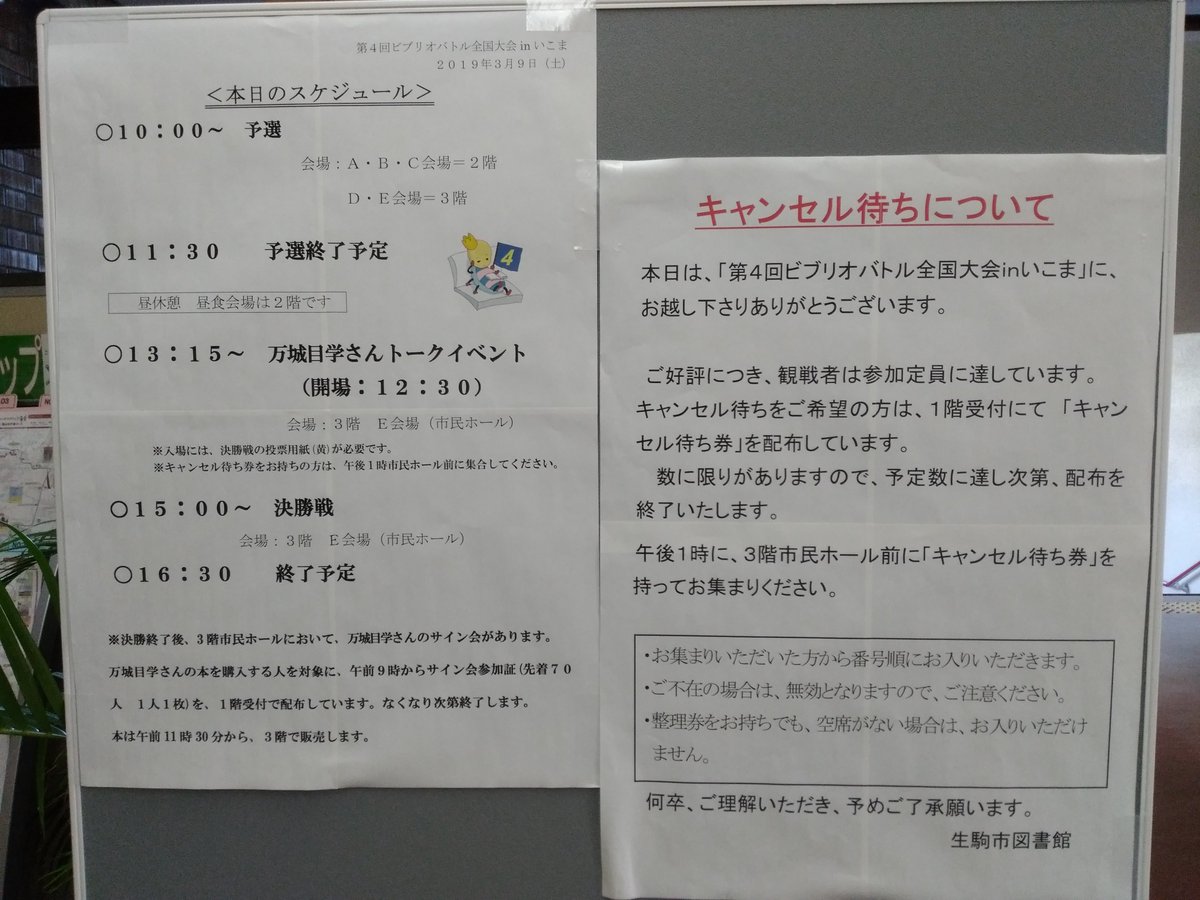 第4回ビブリオバトル全国大会 in いこま
2019年3月9日（土）
＜本日のスケジュール＞
○10：00～　予選
会場：A・B・C会場＝2階
D・E会場＝3階
○11：30　　予選終了予定
4
昼休憩　昼食会場は2階です
○13：15～　万城目学さんトークイベント
（開場：12：30）
会場：3階　E会場（市民ホール）
※入場には、決勝戦の投票用紙(黄)が必要です。
※キャンセル待ち券をお持ちの方は、午後1時市民ホール前に集合してください。
○15：00～　決勝戦
会場：3階　E会場（市民ホール）
○16：30　　終了予定
※決勝終了後、3階市民ホールにおいて、万城目学さんのサイン会があります。
万城目学さんの本を購入する人を対象に、午前9時からサイン会参加証(先着70
人　1人1枚)を、1階受付で配布しています。なくなり次第終了します。
本は午前11時30分から、3階で販売します。
キャンセル待ちについて
本日は、「第4回ビブリオバトル全国大会inいこま」に、
お越し下さりありがとうございます。
ご好評につき、観戦者は参加定員に達しています。
キャンセル待ちをご希望の方は、1階受付にて　「キャン
セル待ち券」を配布しています。
数に限りがありますので、予定数に達し次第、配布を
終了いたします。
午後1時に、3階市民ホール前に「キャンセル待ち券」を
持ってお集まりください。
・お集まりいただいた方から番号順にお入りいただきます。
・ご不在の場合は、無効となりますので、ご注意ください。
・整理券をお持ちでも、空席がない場合は、お入りいただけ
ません。
何卒、ご理解いただき、予めご了承願います。
生駒市図書館
ップ